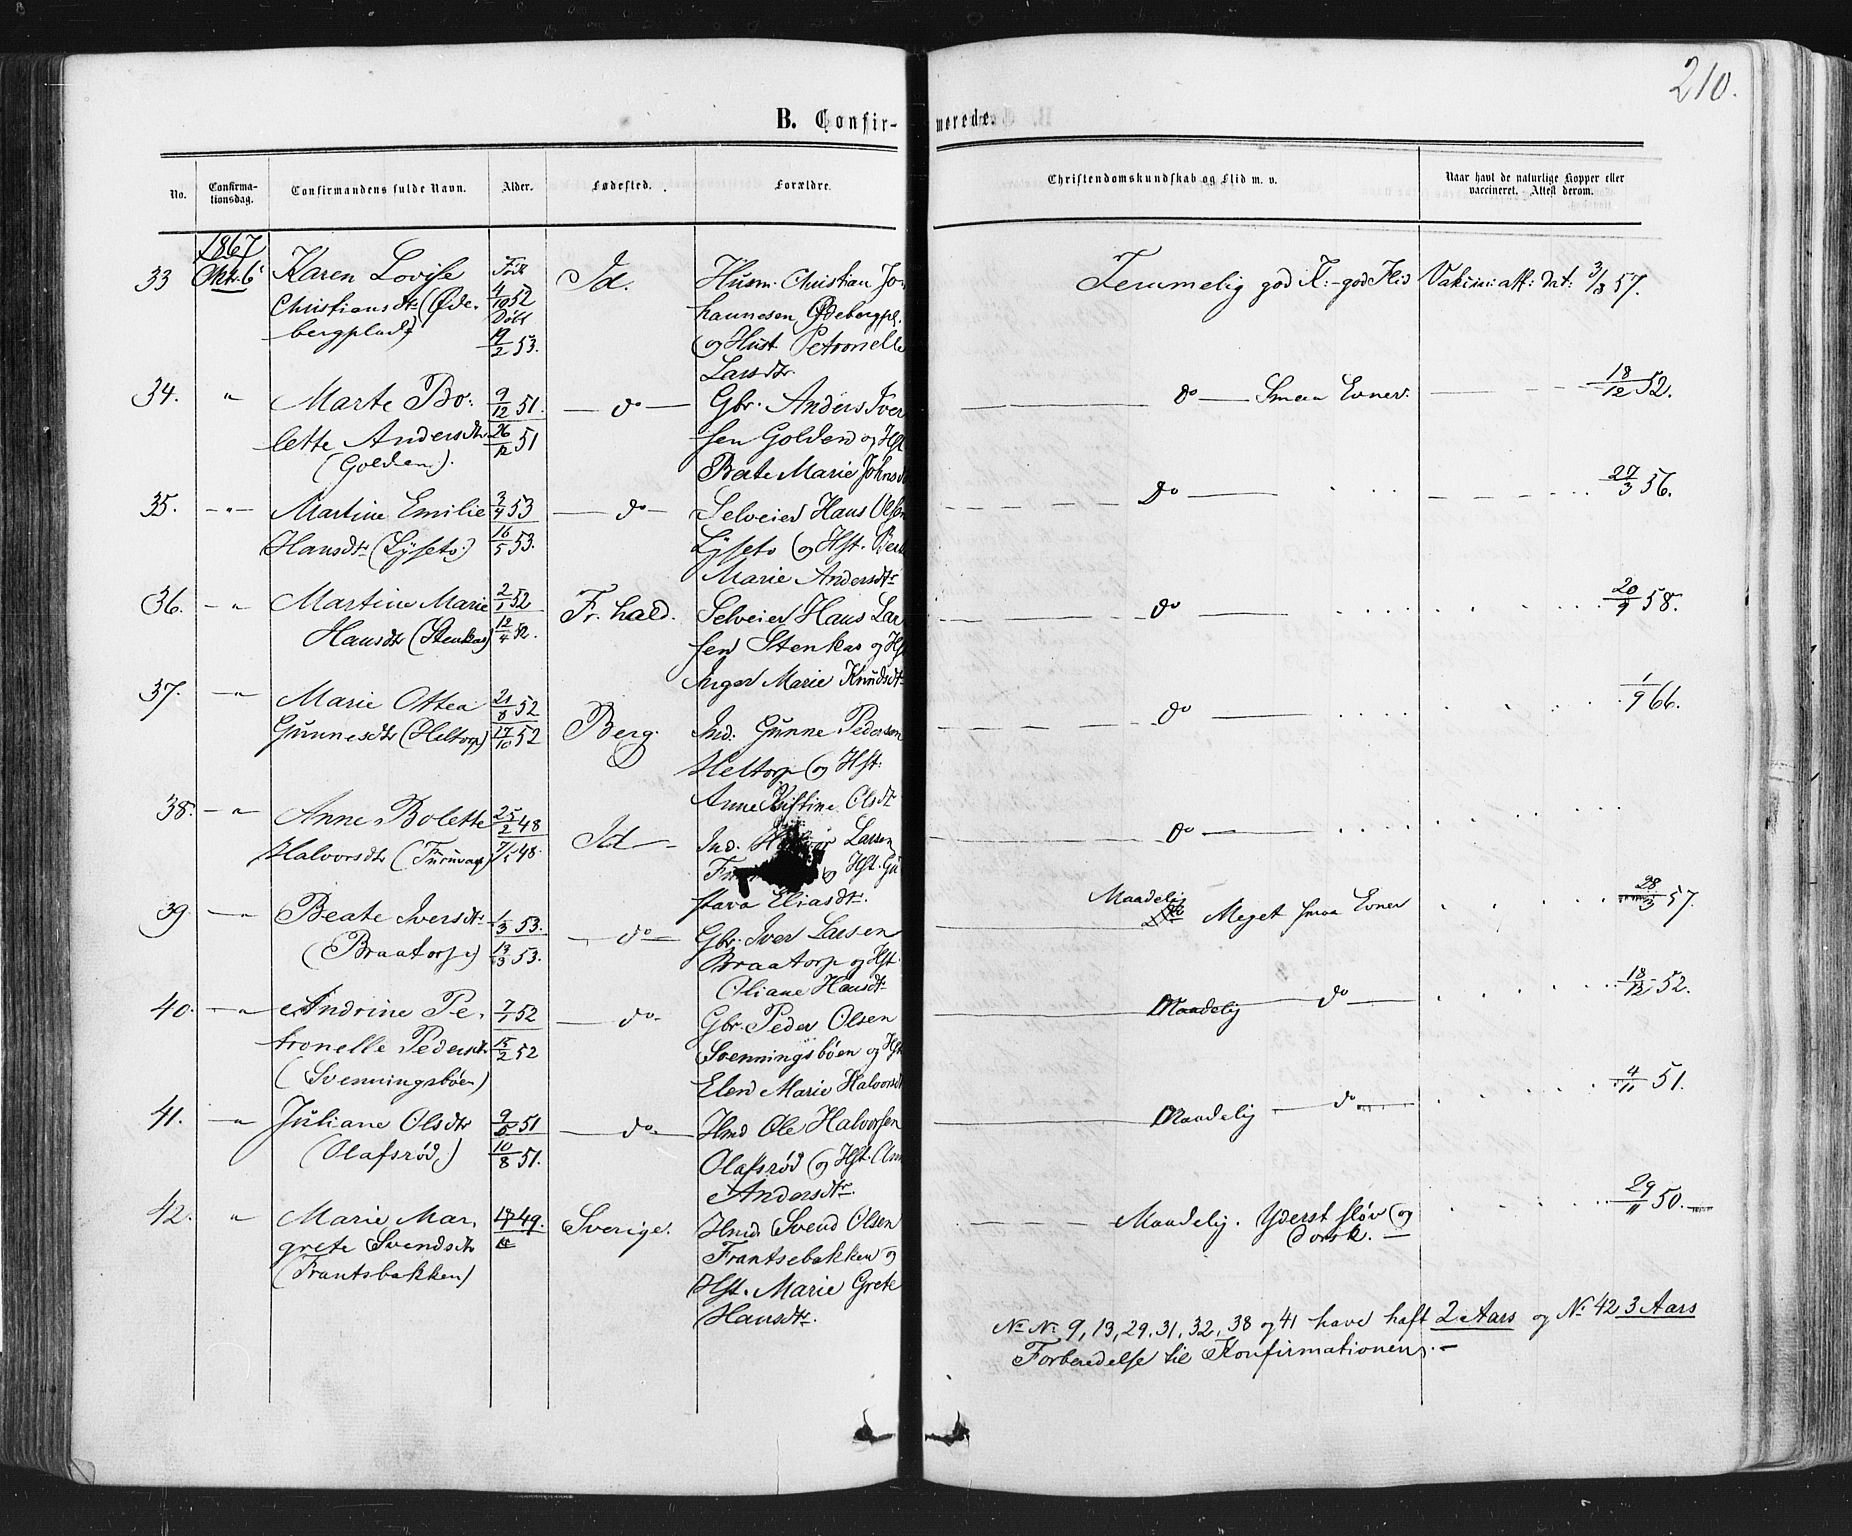 210.
B. Confir-merede.
No. Confirma-tionsdag. Confirmandens fulde Navn. Alder. Fødested. Forældre. Christendomskundskab og Flid m. v. Naar havt de naturlige Kopper eller vaccineret. Attest derom.
1867
33 Oktr. 6 Karen Lovise Født Id. Husm. Christian Jo- Temmelig god K: - god Flid Vakcin: att: dat: 3/8 57.
Christiansdtr (Øde- 4/10 52 hannesen Ødebergpl.
bergplads) Døbt og Hust. Petronelle
17/2 53. Larsdtr.
34. " Marte Bo- 9/12 51. do Gbr. Anders Iver do Smaa Evner. 18/12 52.
lette Andersdtr 26/12 51 sen Golden og Hst
(Golden). Beate Marie Johnsd
35. " Martine Emilie 3/4 53 do Selveier Hans Olsen do 27/3 56.
Hansdtr (Lyseto) 16/5 53. Lyseto og Hst.
Marie Andersdtr
36. " Martine Marie 2/1 52 Fr.hald. Selveier Hans Lar do 20/9 58.
Hansdtr (Stenkas) 12/4 52. sen Stenkas og Hst
Inger Marie Knudsdtr
37. " Marie Ottea 21/8 52 Berg. Ind. Gunne Pedersen do 1/9 66.
Gunnesdtr (Heltorp) 17/10 52 Heltorp og Hst:
Anne Kristine Olsdtr
38. " Anne Bolette 25/2 48 Id Ind. Larsen do
Halvorsdtr 7/5 48. og Hst. Gu
stava Eliasdtr.
39. " Beate Iversdtr 1/3 53. do Gbr. Iver Larsen Maadelig Meget smaa Evner 28/3 57.
(Braatorp) 13/3 53. Braatorp og Hst.
Oliane Hansdtr
40. " Andrine Pe- 7/1 52 do Gbr. Peder Olsen Maadelig do 18/12 52.
tronelle Pedersdtr 15/2 52 Svenningsbøen og Hst
(Svenningsbøen) Elen Marie Halvorsd
41. " Juliane Olsdtr 51 do Hmd Ole Halvorsen Maadelig do 4/11 51.
(Olafsrød) 10/8 51. Olafsrød og Hst. Ann
Andersdtr.
42. " Marie Mar- 49. Sverige. Hmd. Svend Olsen Maadelig. Yderst sløv og 29/11 50.
grete Svendsdtr Frantsebakken og dorsk.
(Frantsbakken) Hst. Marie Grete
Hansdtr.
No. No. 9, 13, 29, 31, 32, 38 og 41 have haft 2 Aars og No. 42 3 Aars
Forberedelse til Konfirmationen.